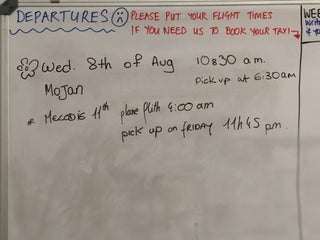 DEPARTURES PLEASE PUT YOUR FLIGHT TIMES
IF YOU NEED US TO BOOK YOUR TAXI
WEE
Wed. 8th of Aug 10h30 am.
Pick up at 6:30am
Mojan
* MELODIE 11th plane flith 4:00 am
pick up on FRIDAY 11h45 pm.